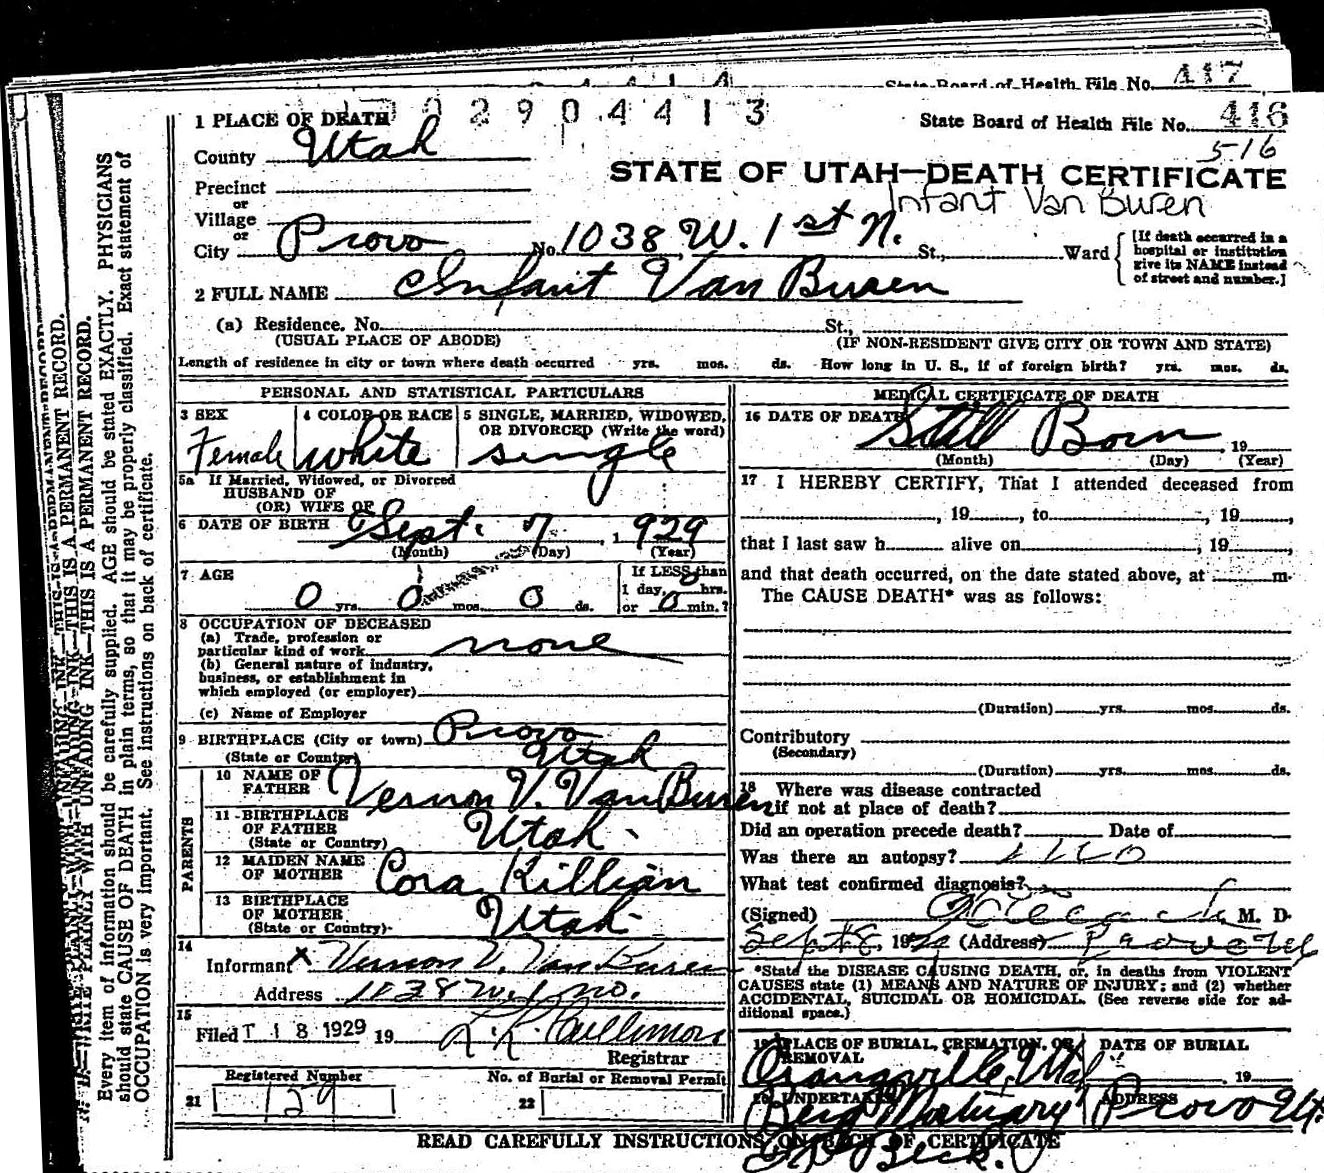 State Board of Health File No. 417
1 PLACE OF DEATH
2904413
State Board of Health File No. 416
516
County Utah
STATE OF UTAH—DEATH CERTIFICATE
Infant Van Buren
Precinct
or
Village
or
City Provo No. 1038 W. 1st N. St., Ward
[If death occurred in a
hospital or institution
give its NAME instead
of street and number.]
2 FULL NAME Infant Van Buren
(a) Residence. No. St.,
(USUAL PLACE OF ABODE) (IF NON-RESIDENT GIVE CITY OR TOWN AND STATE)
Length of residence in city or town where death occurred yrs. mos. ds. How long in U. S., if of foreign birth? yrs. mos. ds.
PERSONAL AND STATISTICAL PARTICULARS
3 SEX 4 COLOR OR RACE 5 SINGLE, MARRIED, WIDOWED,
OR DIVORCED (Write the word)
Female white single
5a If Married, Widowed, or Divorced
HUSBAND OF
(OR) WIFE OF
6 DATE OF BIRTH Sept. 7, 1929
(Month) (Day) (Year)
7 AGE If LESS than
1 day, 0 hrs.
0 yrs. 0 mos. 0 ds. or 0 min.?
8 OCCUPATION OF DECEASED
(a) Trade, profession or
particular kind of work none
(b) General nature of industry,
business, or establishment in
which employed (or employer)
(c) Name of Employer
9 BIRTHPLACE (City or town) Provo
(State or Country) Utah
PARENTS
10 NAME OF
FATHER Vernon V. Van Buren
11 BIRTHPLACE
OF FATHER
(State or Country) Utah
12 MAIDEN NAME
OF MOTHER Cora Killian
13 BIRTHPLACE
OF MOTHER
(State or Country) Utah
14
Informant x Vernon V. Van Buren
Address 1038 W. 1 No.
15
Filed T 18 1929 19
Registrar
Registered Number No. of Burial or Removal Permit
21 129 22
MEDICAL CERTIFICATE OF DEATH
16 DATE OF DEATH Still Born, 19
(Month) (Day) (Year)
17 I HEREBY CERTIFY, That I attended deceased from
, 19 , to , 19 ,
that I last saw h alive on , 19 ,
and that death occurred, on the date stated above, at m.
The CAUSE DEATH* was as follows:
(Duration) yrs. mos. ds.
Contributory
(Secondary)
(Duration) yrs. mos. ds.
18 Where was disease contracted
if not at place of death?
Did an operation precede death? Date of
Was there an autopsy? no
What test confirmed diagnosis?
(Signed) M. D.
Sept 8, 1929 (Address) Provo
*State the DISEASE CAUSING DEATH, or, in deaths from VIOLENT
CAUSES state (1) MEANS AND NATURE OF INJURY; and (2) whether
ACCIDENTAL, SUICIDAL OR HOMICIDAL. (See reverse side for ad-
ditional space.)
19 PLACE OF BURIAL, CREMATION, OR REMOVAL DATE OF BURIAL
Orangeville, Utah , 19
20 UNDERTAKER ADDRESS
Berg Mortuary Provo Ut.
Beck.
READ CAREFULLY INSTRUCTIONS ON BACK OF CERTIFICATE
WRITE PLAINLY WITH UNFADING INK—THIS IS A PERMANENT RECORD.
Every item of information should be carefully supplied. AGE should be stated EXACTLY. PHYSICIANS
should state CAUSE OF DEATH in plain terms, so that it may be properly classified. Exact statement of
OCCUPATION is very important. See instructions on back of certificate.